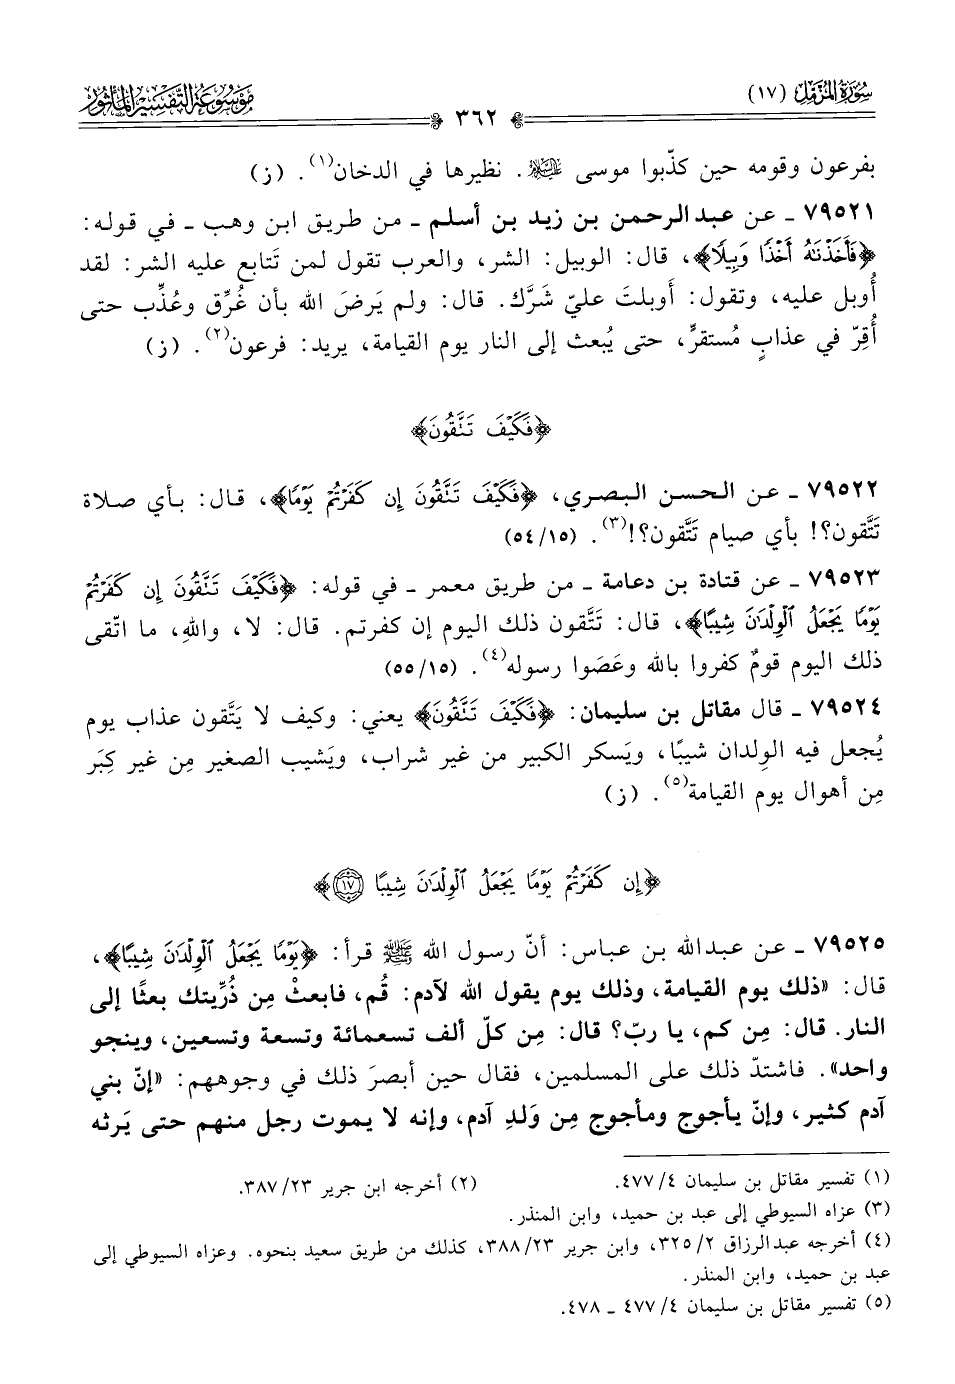 سُورَةُ المُزَّمِّل (١٧)
٣٦٢
مَوْسُوعَة التَّفْسِيْر المَأْثُور
بفرعون وقومه حين كذّبوا موسى عليه السلام. نظيرها في الدخان(١). (ز)
٧٩٥٢١ ـ عن عبد الرحمن بن زيد بن أسلم ـ من طريق ابن وهب ـ في قوله:
﴿فَأَخَذْنَٰهُ أَخْذًا وَبِيلًا﴾، قال: الوبيل: الشر، والعرب تقول لمن تَتابع عليه الشر: لقد
أُوبل عليه، وتقول: أَوبلتَ عليّ شَرَّك. قال: ولم يَرضَ الله بأن غُرِّق وعُذِّب حتى
أُقِرّ في عذابٍ مُستقرٍّ، حتى يُبعث إلى النار يوم القيامة، يريد: فرعون(٢). (ز)
﴿فَكَيْفَ تَتَّقُونَ﴾
٧٩٥٢٢ ـ عن الحسن البصري، ﴿فَكَيْفَ تَتَّقُونَ إِن كَفَرْتُمْ يَوْمًا﴾، قال: بأي صلاة
تَتَّقون؟! بأي صيام تَتَّقون؟!(٣). (١٥/٥٤)
٧٩٥٢٣ ـ عن قتادة بن دعامة ـ من طريق معمر ـ في قوله: ﴿فَكَيْفَ تَتَّقُونَ إِن كَفَرْتُمْ
يَوْمًا يَجْعَلُ ٱلْوِلْدَٰنَ شِيبًا﴾، قال: تَتَّقون ذلك اليوم إن كفرتم. قال: لا، واللهِ، ما اتّقى
ذلك اليوم قومٌ كفروا بالله وعَصَوا رسوله(٤). (١٥/٥٥)
٧٩٥٢٤ ـ قال مقاتل بن سليمان: ﴿فَكَيْفَ تَتَّقُونَ﴾ يعني: وكيف لا يَتَّقون عذاب يوم
يُجعل فيه الوِلدان شيبًا، ويَسكر الكبير من غير شراب، ويَشيب الصغير مِن غير كِبَر
مِن أهوال يوم القيامة(٥). (ز)
﴿إِن كَفَرْتُمْ يَوْمًا يَجْعَلُ ٱلْوِلْدَٰنَ شِيبًا ١٧﴾
٧٩٥٢٥ ـ عن عبدالله بن عباس: أنّ رسول الله ﷺ قرأ: ﴿يَوْمًا يَجْعَلُ ٱلْوِلْدَٰنَ شِيبًا﴾،
قال: «ذلك يوم القيامة، وذلك يوم يقول الله لآدم: قُم، فابعثْ مِن ذُرِّيتك بعثًا إلى
النار. قال: مِن كم، يا ربّ؟ قال: مِن كلّ ألف تسعمائة وتسعة وتسعين، وينجو
واحد». فاشتدّ ذلك على المسلمين، فقال حين أبصرَ ذلك في وجوههم: «إنّ بني
آدم كثير، وإنّ يأجوج ومأجوج مِن وَلدِ آدم، وإنه لا يموت رجل منهم حتى يَرثه
(١) تفسير مقاتل بن سليمان ٤/ ٤٧٧. (٢) أخرجه ابن جرير ٢٣/ ٣٨٧.
(٣) عزاه السيوطي إلى عبد بن حميد، وابن المنذر.
(٤) أخرجه عبدالرزاق ٢/ ٣٢٥، وابن جرير ٢٣/ ٣٨٨، كذلك من طريق سعيد بنحوه. وعزاه السيوطي إلى
عبد بن حميد، وابن المنذر.
(٥) تفسير مقاتل بن سليمان ٤/ ٤٧٧ ـ ٤٧٨.